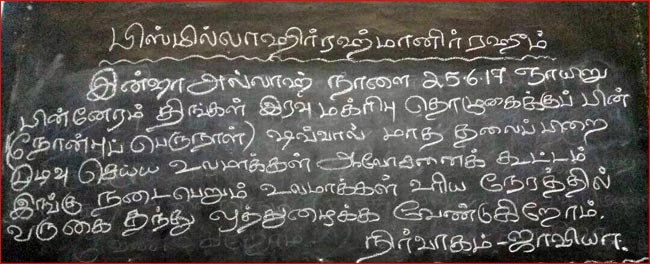 பிஸ்மில்லாஹிர்ரஹ்மானிர்ரஹீம்
இன்ஷா அல்லாஹ் நாளை 25.6.17 ஞாயிறு
பின்னேரம் திங்கள் இரவு மக்ரிபு தொழுகைக்குப் பின்
(நோன்புப் பெருநாள்) ஷவ்வால் மாத தலைப்பிறை
முடிவு செய்ய உலமாக்கள் ஆலோசனைக் கூட்டம்
இங்கு நடைபெறும் உலமாக்கள் உரிய நேரத்தில்
வருகை தந்து ஒத்துழைக்க வேண்டுகிறோம்.
நிர்வாகம் - ஜாவியா.